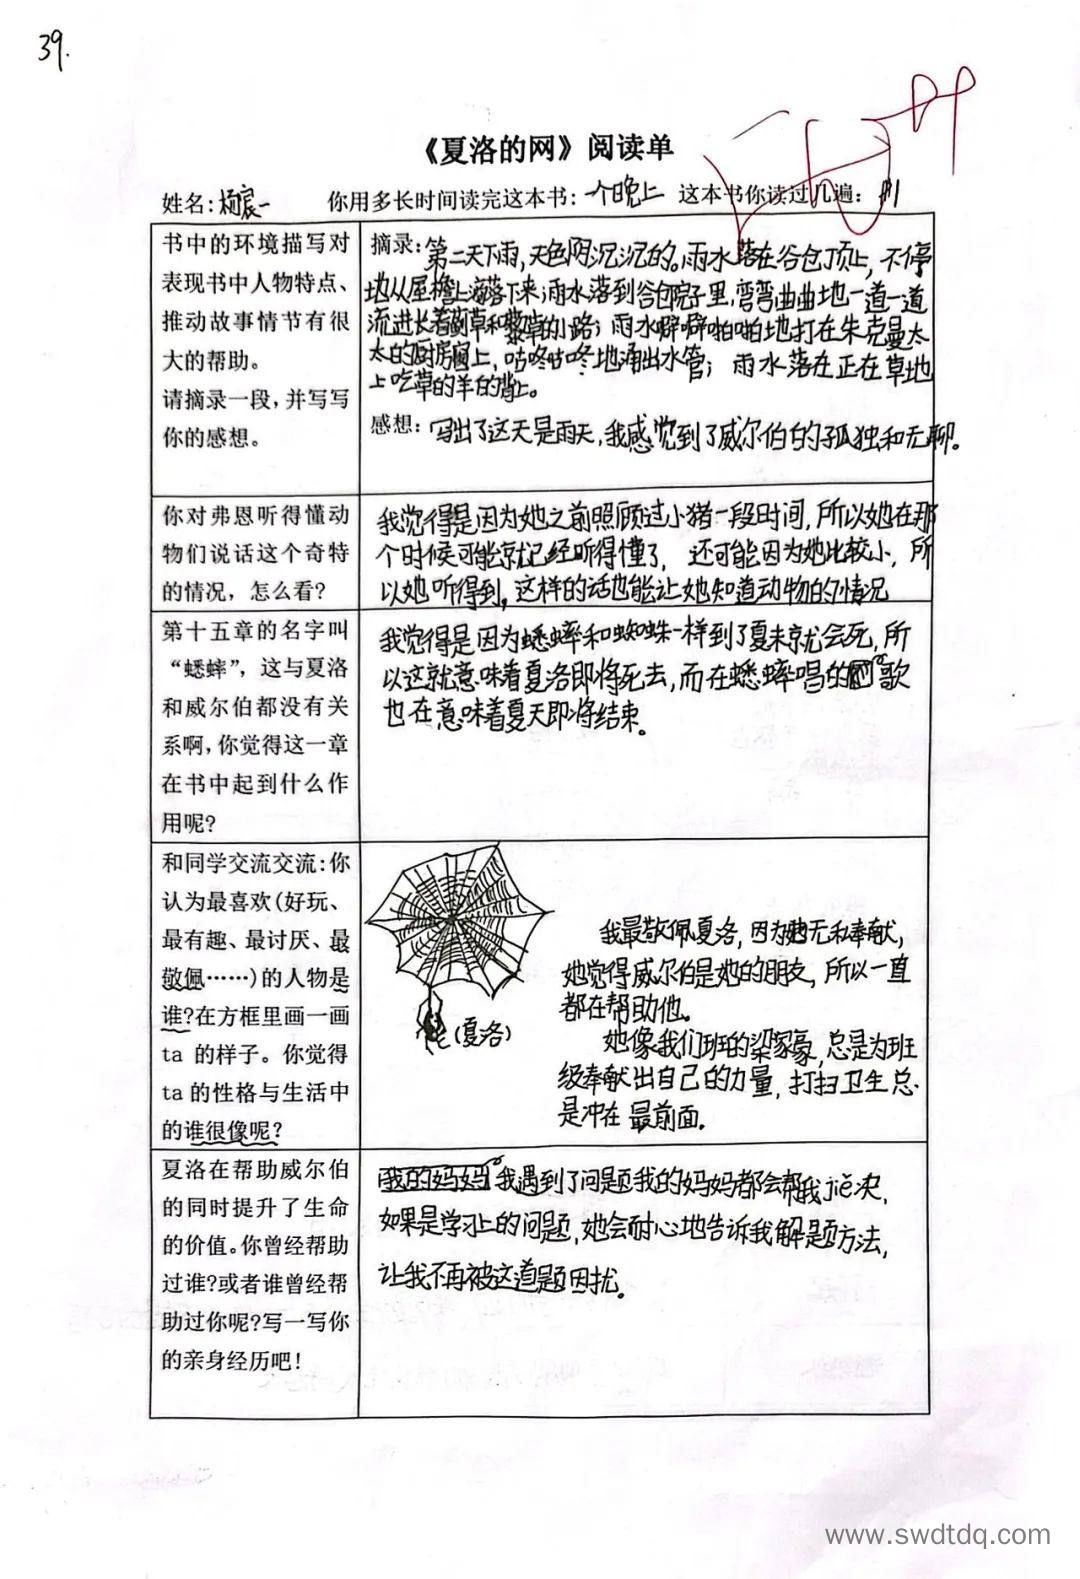 39.
《夏洛的网》阅读单
姓名:杨宸一 你用多长时间读完这本书:一个晚上 这本书你读过几遍: 1
书中的环境描写对
表现书中人物特点、
推动故事情节有很
大的帮助。
请摘录一段,并写写
你的感想。
摘录:第二天下雨,天色阴沉沉的。雨水落在谷仓顶上,不停
地从屋檐上落下来;雨水落到谷仓院子里,弯弯曲曲地一道一道
流进长着蓟草和藜草的小路;雨水噼噼啪啪地打在朱克曼太
太的厨房窗上,咕咚咕咚地涌出水管;雨水落在正在草地
上吃草的羊的背上。
感想:写出了这天是雨天,我感觉到了威尔伯的孤独和无聊。
你对弗恩听得懂动
物们说话这个奇特
的情况,怎么看?
我觉得是因为她之前照顾过小猪一段时间,所以她在那
个时候可能就已经听得懂了,还可能因为她比较小,所
以她听得到,这样的话也能让她知道动物的情况
第十五章的名字叫
“蟋蟀”,这与夏洛
和威尔伯都没有关
系啊,你觉得这一章
在书中起到什么作
用呢?
我觉得是因为蟋蟀和蜘蛛一样到了夏末就会死,所
以这就意味着夏洛即将死去,而在蟋蟀唱的歌
也在意味着夏天即将结束。
和同学交流交流:你
认为最喜欢(好玩、
最有趣、最讨厌、最
敬佩……)的人物是
谁?在方框里画一画
ta 的样子。你觉得
ta 的性格与生活中
的谁很像呢?
(夏洛)
我最敬佩夏洛,因为她无私奉献,
她觉得威尔伯是她的朋友,所以一直
都在帮助他。
她像我们班的梁家豪,总是为班
级奉献出自己的力量,打扫卫生总
是冲在最前面。
夏洛在帮助威尔伯
的同时提升了生命
的价值。你曾经帮助
过谁?或者谁曾经帮
助过你呢?写一写你
的亲身经历吧!
我的妈妈我遇到了问题我的妈妈都会帮我解决,
如果是学习上的问题,她会耐心地告诉我解题方法,
让我不再被这道题困扰。
www.swdtdq.com